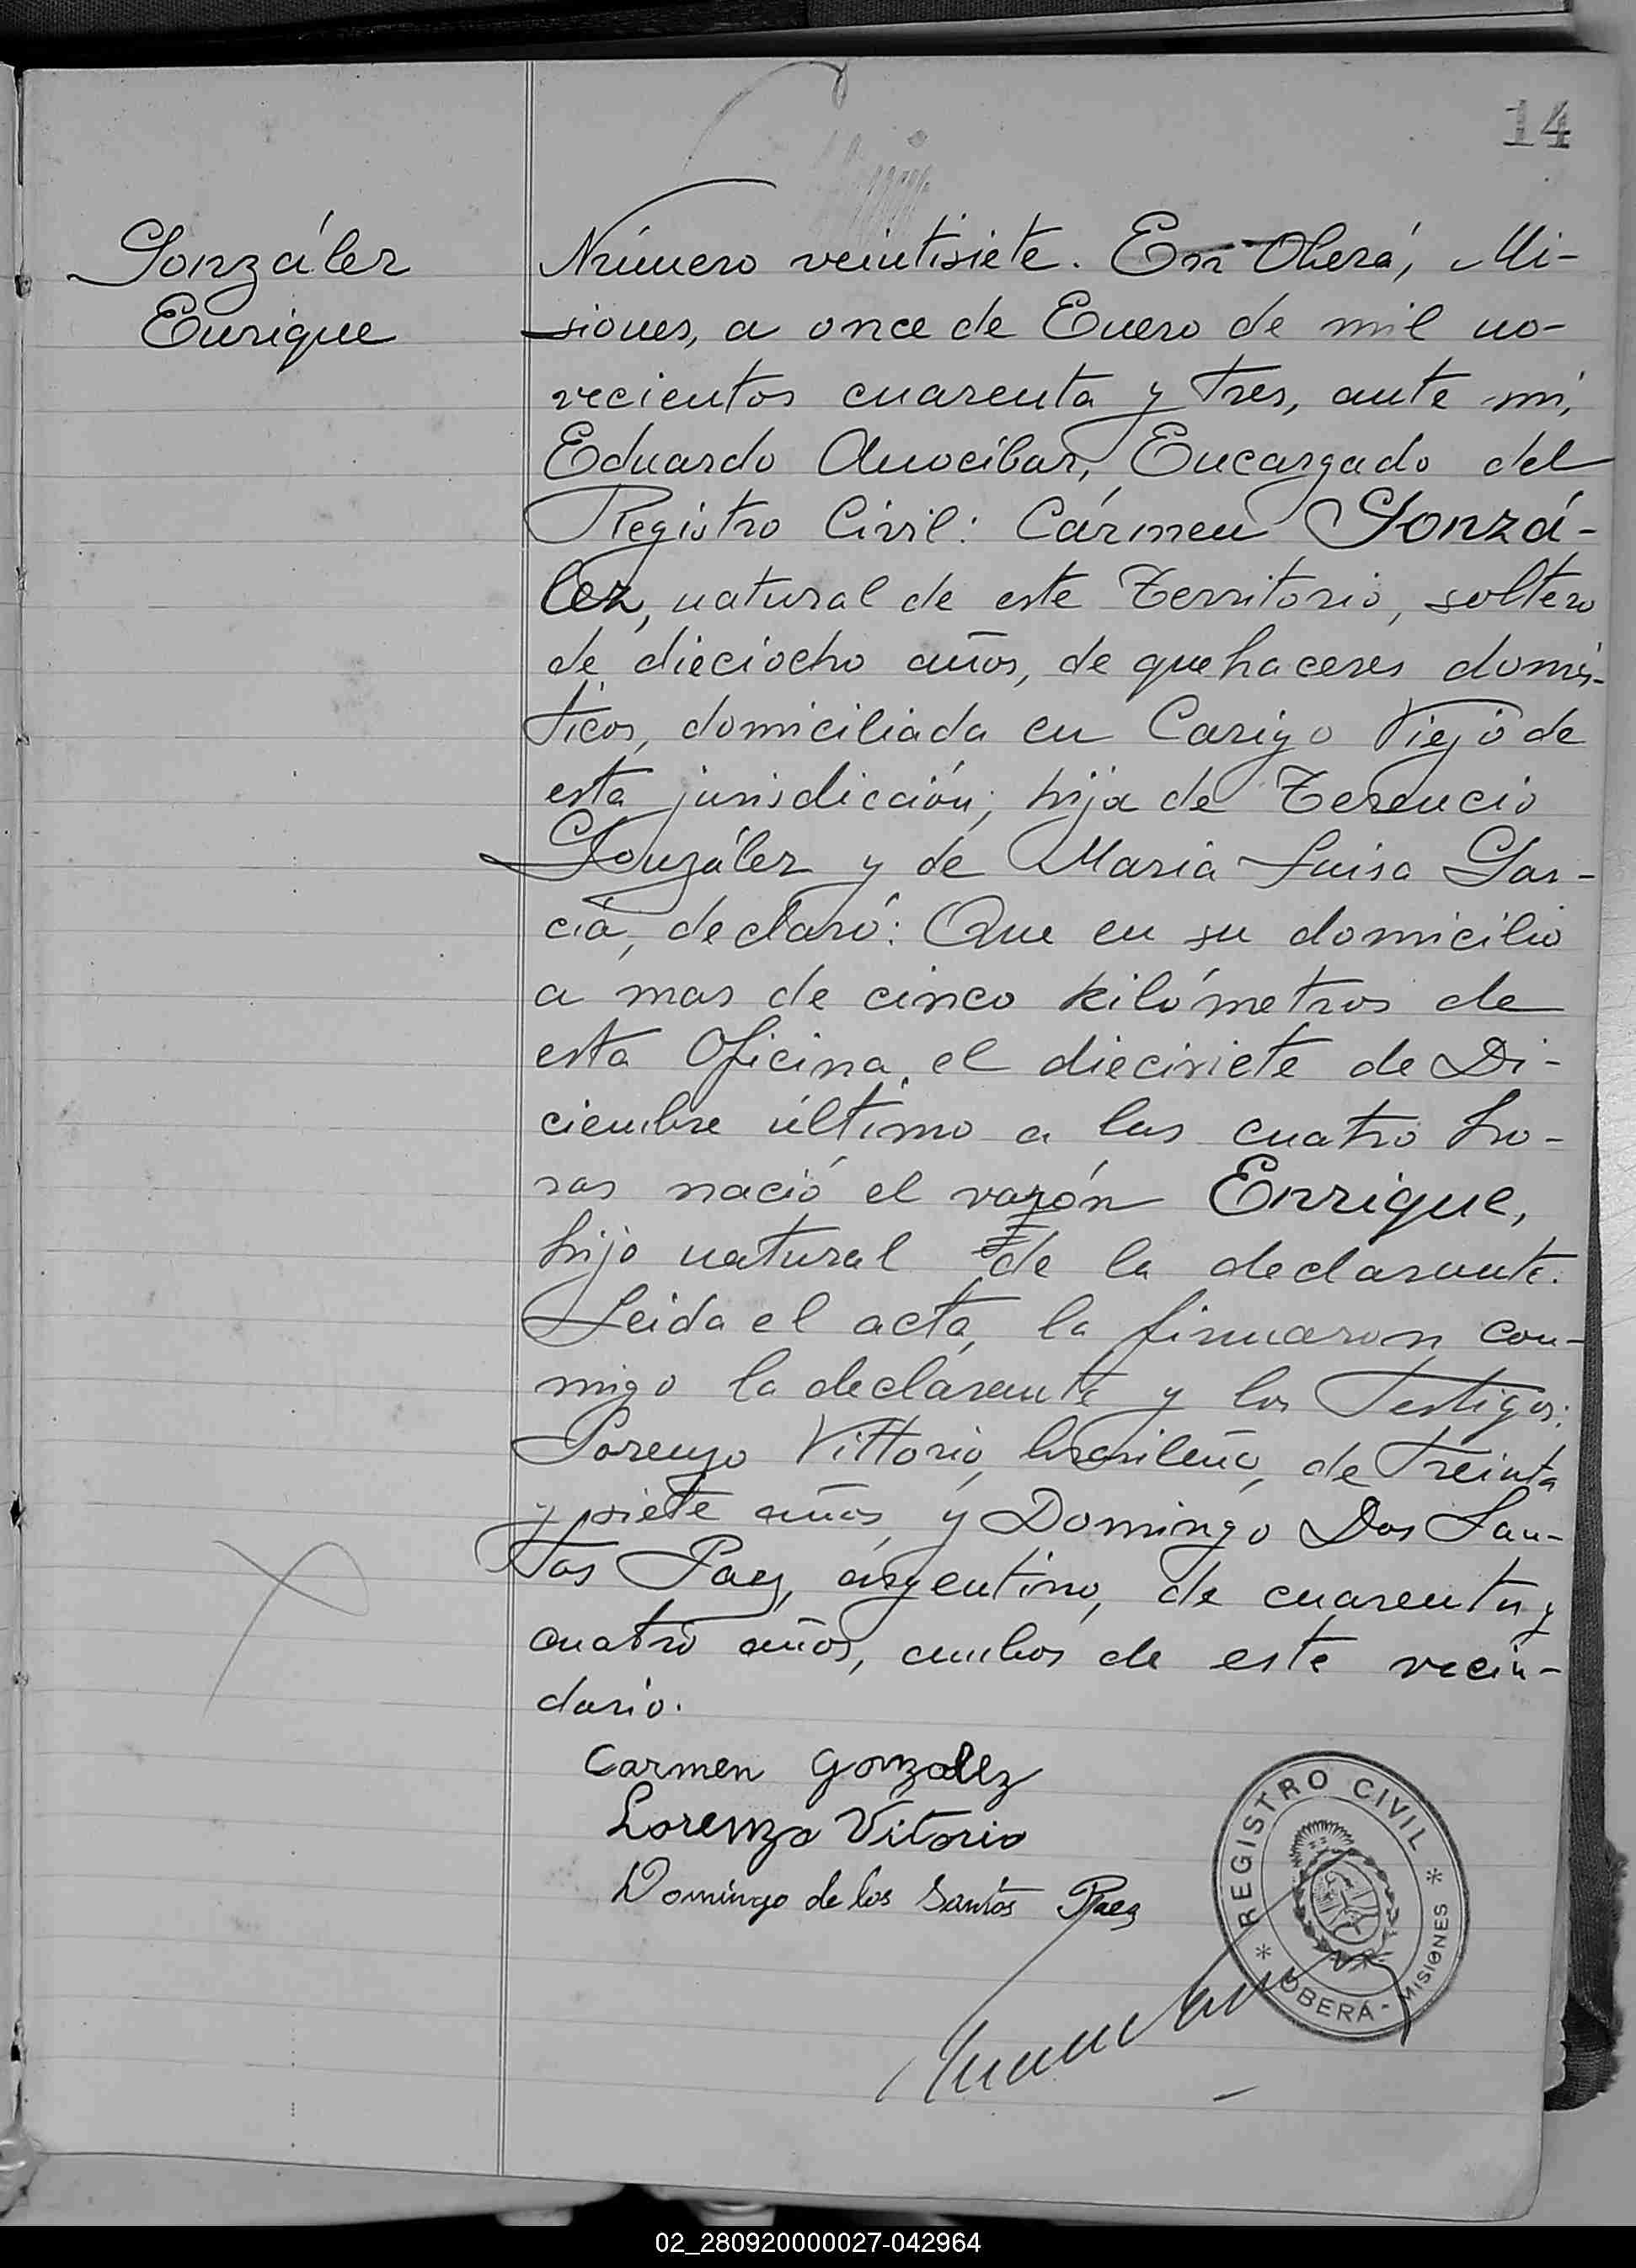 14
González
Enrique
Número veintisiete. En Oberá, Mi-
siones, a once de Enero de mil no-
vecientos cuarenta y tres, ante mí,
Eduardo Anocíbar, Encargado del
Registro Civil: Cármen Gonzá-
lez, natural de este Territorio, soltera
de dieciocho años, de quehaceres domés-
ticos, domiciliada en Viejo de
esta jurisdicción; hija de Terencio
González y de Maria Luisa Gar-
cía, declaró: Que en su domicilio
a mas de cinco kilómetros de
esta Oficina, el diecisiete de Di-
ciembre último a las cuatro ho-
ras nació el varón Enrique,
hijo natural de la declarante.
Leida el acta, la firmaron con-
migo la declarante y los Testigos:
Lorenzo Vittorio, brasileño, de treinta
y siete años y Domingo Dos San-
tos Paez, argentino, de cuarenta y
cuatro años, ambos de este vecin-
dario.
Carmen Gonzalez
Lorenzo Vitorio
Domingo de los Santos Paez
* REGISTRO CIVIL *
OBERÁ - MISIONES
02_280920000027-042964